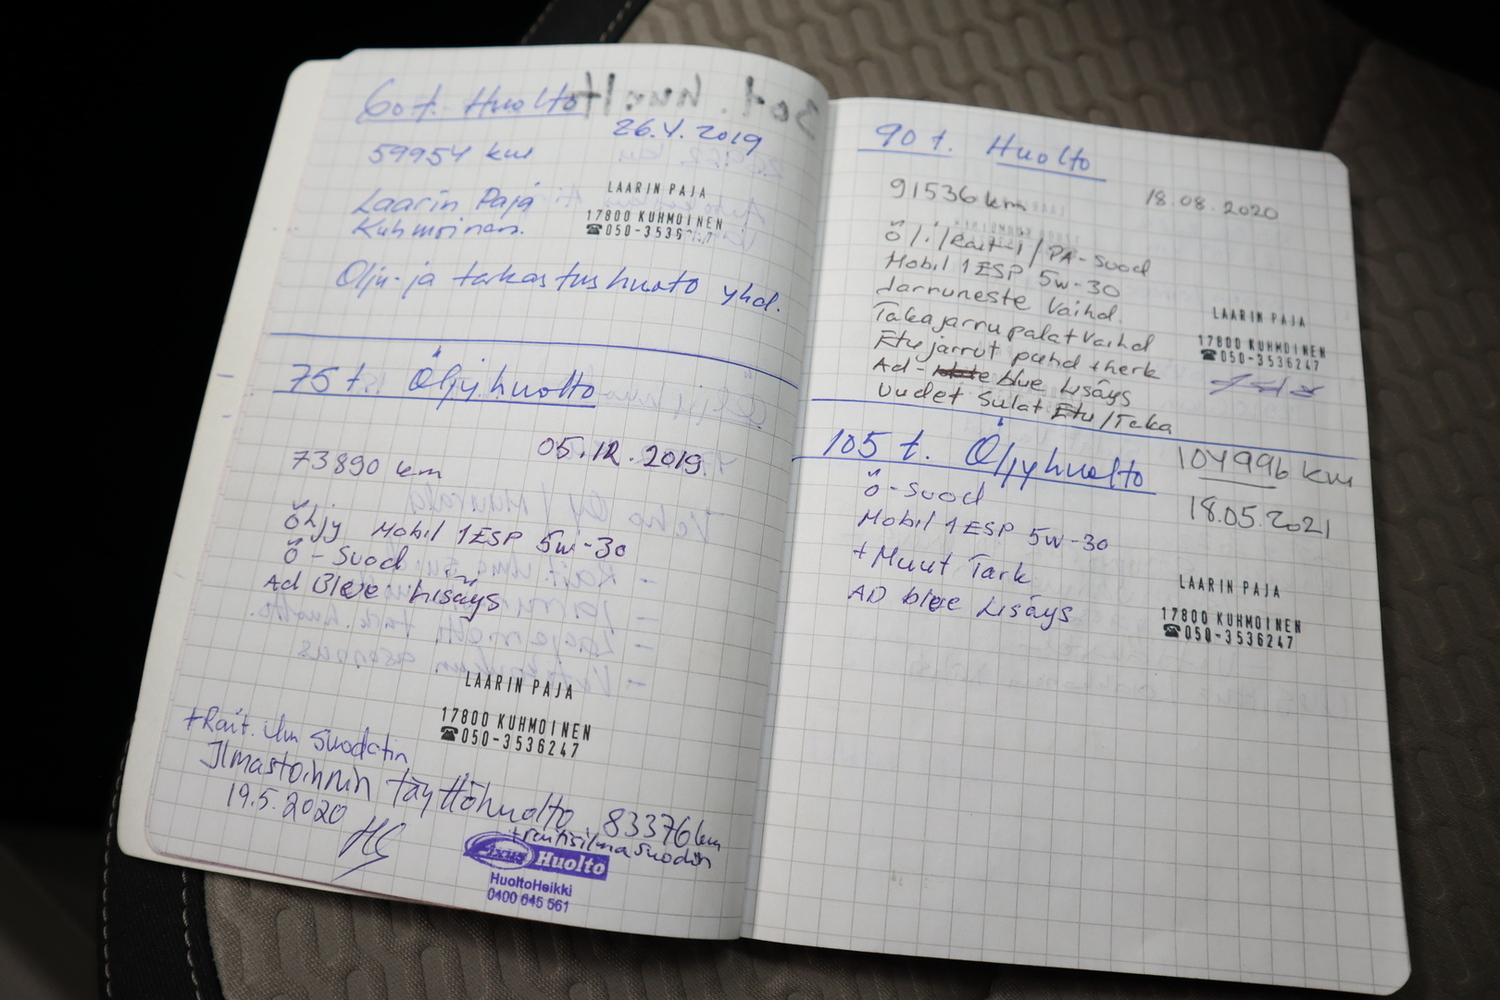 60 t. Huolto
26.4.2019
59954 km
Laarin Paja
Kuhmoinen.
LAARIN PAJA
17800 KUHMOINEN
☎050-3536247
Öljy- ja tarkastushuolto yhd.
75 t. Öljyhuolto
05.12.2019
73890 km
Öljy Mobil 1 ESP 5w-30
Ö-Suod
Ad Blue Lisäys
LAARIN PAJA
17800 KUHMOINEN
☎050-3536247
+Rait. ilm suodatin
Ilmastoinnin täyttöhuolto 83376 km
19.5.2020
+raitisilmasuodin
Fixus Huolto
HuoltoHeikki
0400 645 561
90 t. Huolto
91536 km
18.08.2020
Ö/i/Rait-i/PA-Suod
Mobil 1 ESP 5w-30
Jarruneste Vaihd.
Takajarrupalat vaihd
Etujarrut puhd + herk
Ad-blue Lisäys
Uudet Sulat Etu/Taka
LAARIN PAJA
17800 KUHMOINEN
☎050-3536247
105 t. Öljyhuolto
104996 km
18.05.2021
Ö-Suod
Mobil 1 ESP 5w-30
+Muut Tark
AD blue Lisäys
LAARIN PAJA
17800 KUHMOINEN
☎050-3536247